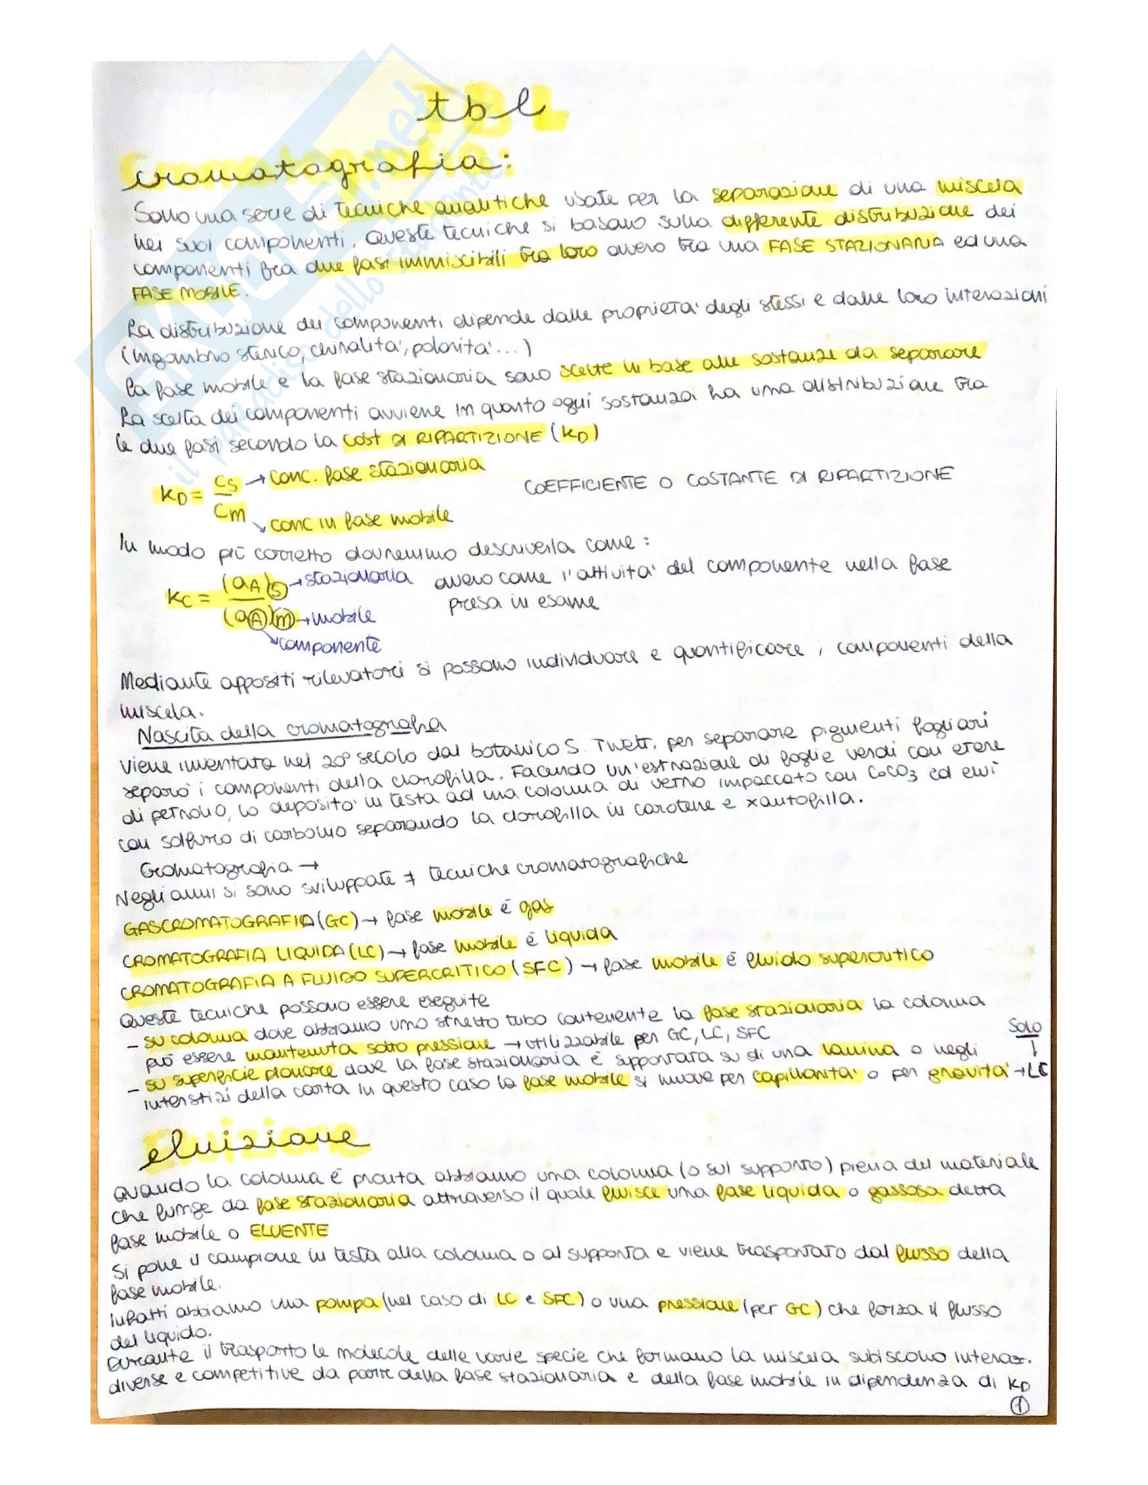 tbl
cromatografia:
Sono una serie di tecniche analitiche usate per la separazione di una miscela
nei suoi componenti. Queste tecniche si basano sulla differente distribuzione dei
componenti fra due fasi immiscibili tra loro ovvero tra una FASE STAZIONARIA ed una
FASE MOBILE.
La distribuzione dei componenti dipende dalle proprietà degli stessi e dalle loro interazioni
(ingombro sterico, chiralità, polarità...)
La fase mobile e la fase stazionaria sono scelte in base alle sostanze da separare
La scelta dei componenti avviene in quanto ogni sostanza ha una distribuzione tra
le due fasi secondo la cost DI RIPARTIZIONE (KD)
KD = Cs/Cm → conc. fase stazionaria
COEFFICIENTE O COSTANTE DI RIPARTIZIONE
↘ conc in fase mobile
In modo più corretto dovremmo descriverla come:
Kc = (aA)s/(aA)m → stazionaria ovvero come l'attività del componente nella fase
presa in esame
→ mobile
↘ componente
Mediante appositi rilevatori si possono individuare e quantificare i componenti della
miscela.
Nascita della cromatografia
Viene inventata nel 20° secolo dal botanico S. Twett, per separare pigmenti fogliari
separò i componenti della clorofilla. Facendo un'estrazione di foglie verdi con etere
di petrolio, lo depositò in testa ad una colonna di vetro impaccato con CaCO3 ed eluì
con solfuro di carbonio separando la clorofilla in carotene e xantofilla.
Cromatografia →
Negli anni si sono sviluppate ≠ tecniche cromatografiche
GASCROMATOGRAFIA (GC) → fase mobile è gas
CROMATOGRAFIA LIQUIDA (LC) → fase mobile è liquida
CROMATOGRAFIA A FLUIDO SUPERCRITICO (SFC) → fase mobile è fluido supercritico
Queste tecniche possono essere eseguite
- su colonna dove abbiamo uno stretto tubo contenente la fase stazionaria la colonna
può essere mantenuta sotto pressione → utilizzabile per GC, LC, SFC
- su superficie planare dove la fase stazionaria è supportata su di una lamina o negli
interstizi della carta in questo caso la fase mobile si muove per capillarità o per gravità → LC
Solo
↓
eluizione
Quando la colonna è pronta abbiamo una colonna (o sul supporto) piena del materiale
che funge da fase stazionaria attraverso il quale fluisce una fase liquida o gassosa detta
fase mobile o ELUENTE
Si pone il campione in testa alla colonna o al supporto e viene trasportato dal flusso della
fase mobile.
Infatti abbiamo una pompa (nel caso di LC e SFC) o una pressione (per GC) che forza il flusso
del liquido.
Durante il trasporto le molecole delle varie specie che formano la miscela subiscono interaz.
diverse e competitive da parte della fase stazionaria e della fase mobile in dipendenza di KD
1